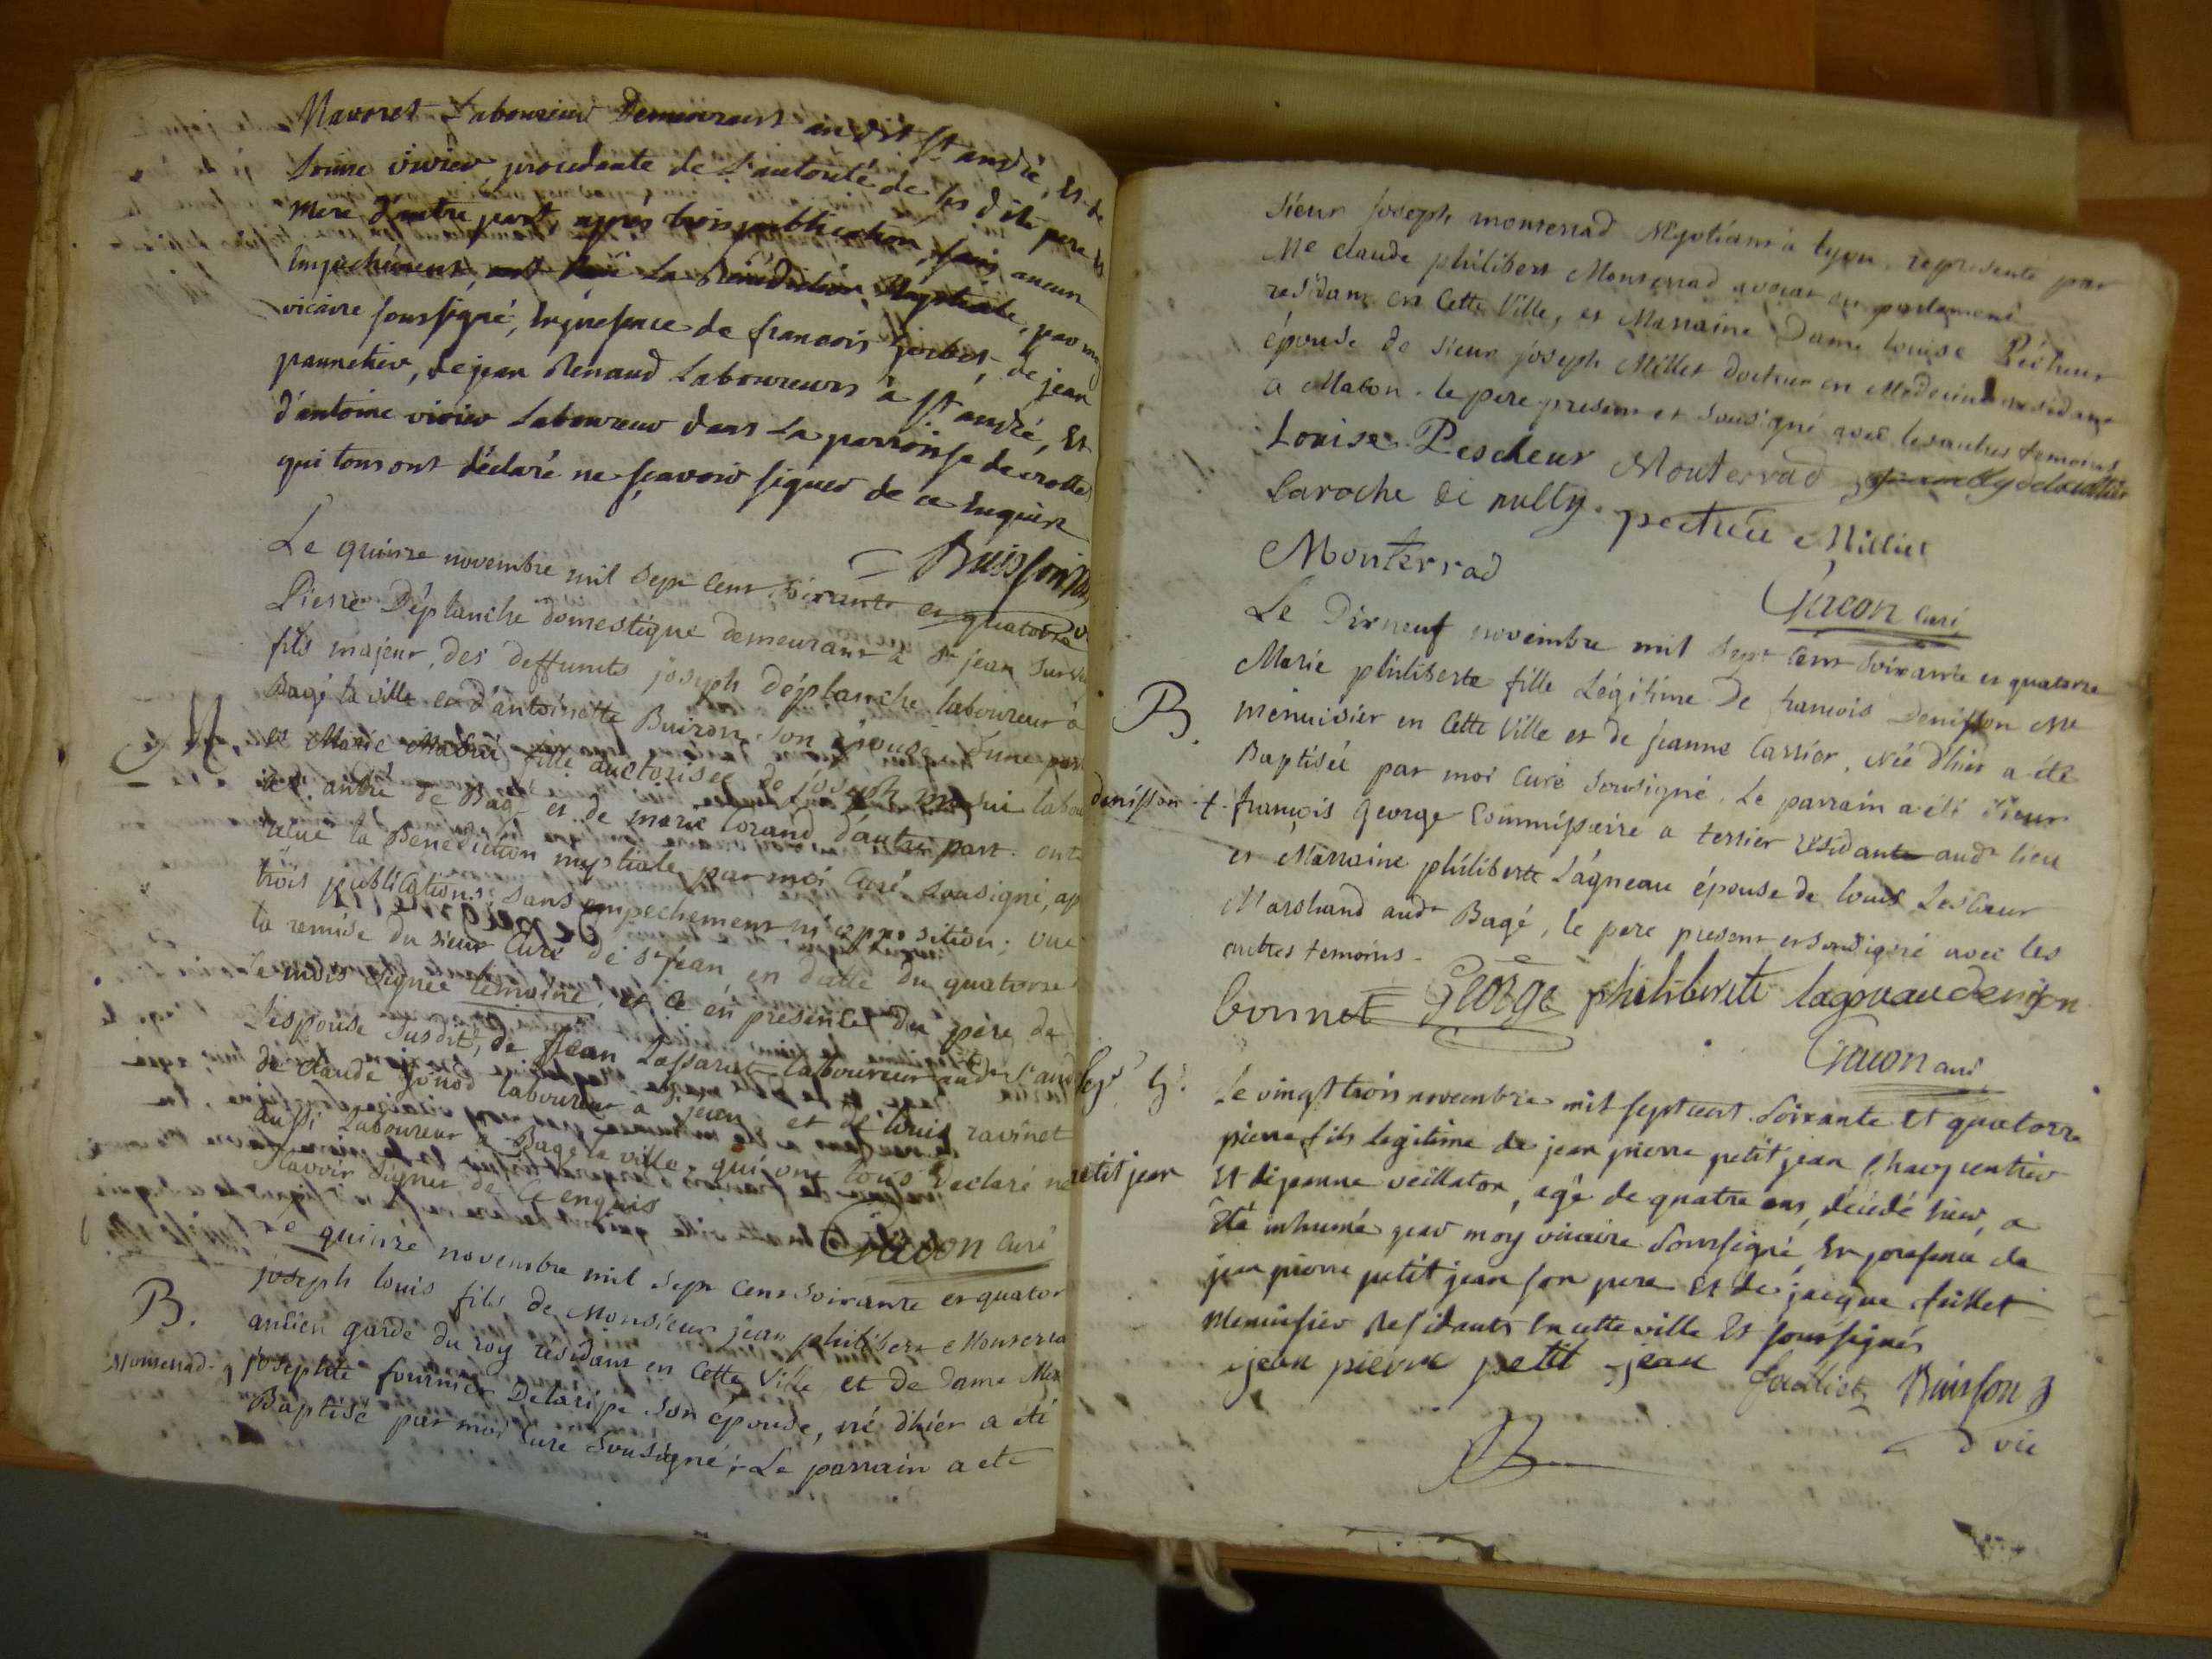 Mavoret Laboureur Demeurant au dit St andré, Et de
Louise vivier, procedante de L'autorité de ses dits pere Et
mere d'autre part, après trois publication, sans aucun
Empechement, ont Reçu La Bénédiction Nuptiale, par moy
vicaire soussigné, En presence de francois de jean
pannetier, de jean Renaud Laboureurs à St andré, Et
d'antoine vivier Laboureur dans La parroisse de crottet
qui tous ont déclaré ne sçavoir signer de ce Enquis
Buisson
Le quinze novembre mil sept cent soixante et quatorze
Pierre Déplanche domestique demeurant à St jean sur
fils majeur, des deffunts joseph déplanche laboureur à
Bagé la ville et d'antoinette Buiron son épouse, d'une part
M. et Marie fille auctorisée de joseph
St andré de Bagé et de marie lorand d'autre part. ont
reçue la Benediction nuptiale par moi Curé Sousigné, ap
trois publications, sans empechement ni opposition; vue
la remise du sieur Curé de St jean en datte du quatorze
le mois signée temoine, et ce en presence du père de
L'espouse susdit, de jean Lassarat laboureur audt St and
de Claude gonod laboureur a St jean et de louis ravinet
aussi Laboureur a Bagé la ville, qui ont tous declaré ne
sçavoir signer de Ce enquis
Gacon Curé
Le quinze novembre mil sept cent soixante et quator
B. joseph louis fils de Monsieur jean philibert Monterra
ancien garde du roy résidant en Cette Ville et de Dame
Monterrad josephte fournier son épouse, né d'hier a été
Baptisé par moi Curé Sousigné; Le parrain a eté
sieur joseph monterrad Negotiant à lyon, représenté par
Me claude philibert Monterrad avocat en parlement
résidant en Cette Ville, et Marraine Dame louise Pécheur
épouse de sieur joseph Millet docteur en Medecine residant
a Macon. le pere present et sousigné avec les autres temoins
Louise Pescheur Monterrad
Laroche de nully. Milliet
Monterrad
Gacon Curé
Le Dixneuf novembre mil sept cent soixante et quatorze
Marie philiberte fille Légitime de francois Denisson Me
B. menuisier en Cette Ville et de jeanne Carrier, Née d'hier a été
Baptisée par moi Curé Sousigné. Le parrain a été sieur
denisson françois George Commissaire a terrier résidant audt lieu
et Marraine philiberte Lagneau épouse de louis Lescœur
Marchand audt Bagé, le pere present et sousigné avec les
autres temoins.
bonnet George philiberte lagneau denison
Gacon curé
Le vingt trois novembre mil sept cent Soixante Et quatorze
pierre fils legitime de jean pierre petit jean Charpentier
petit jean Et de jeanne veillaton, agé de quatre ans, décédé hier, a
Eté inhumé par moy vicaire Soussigné, En presence de
jean pierre petit jean son pere Et de jacque
Menuisier Residants En cette ville Et soussignés
jean pierre petit jean Buisson
vic